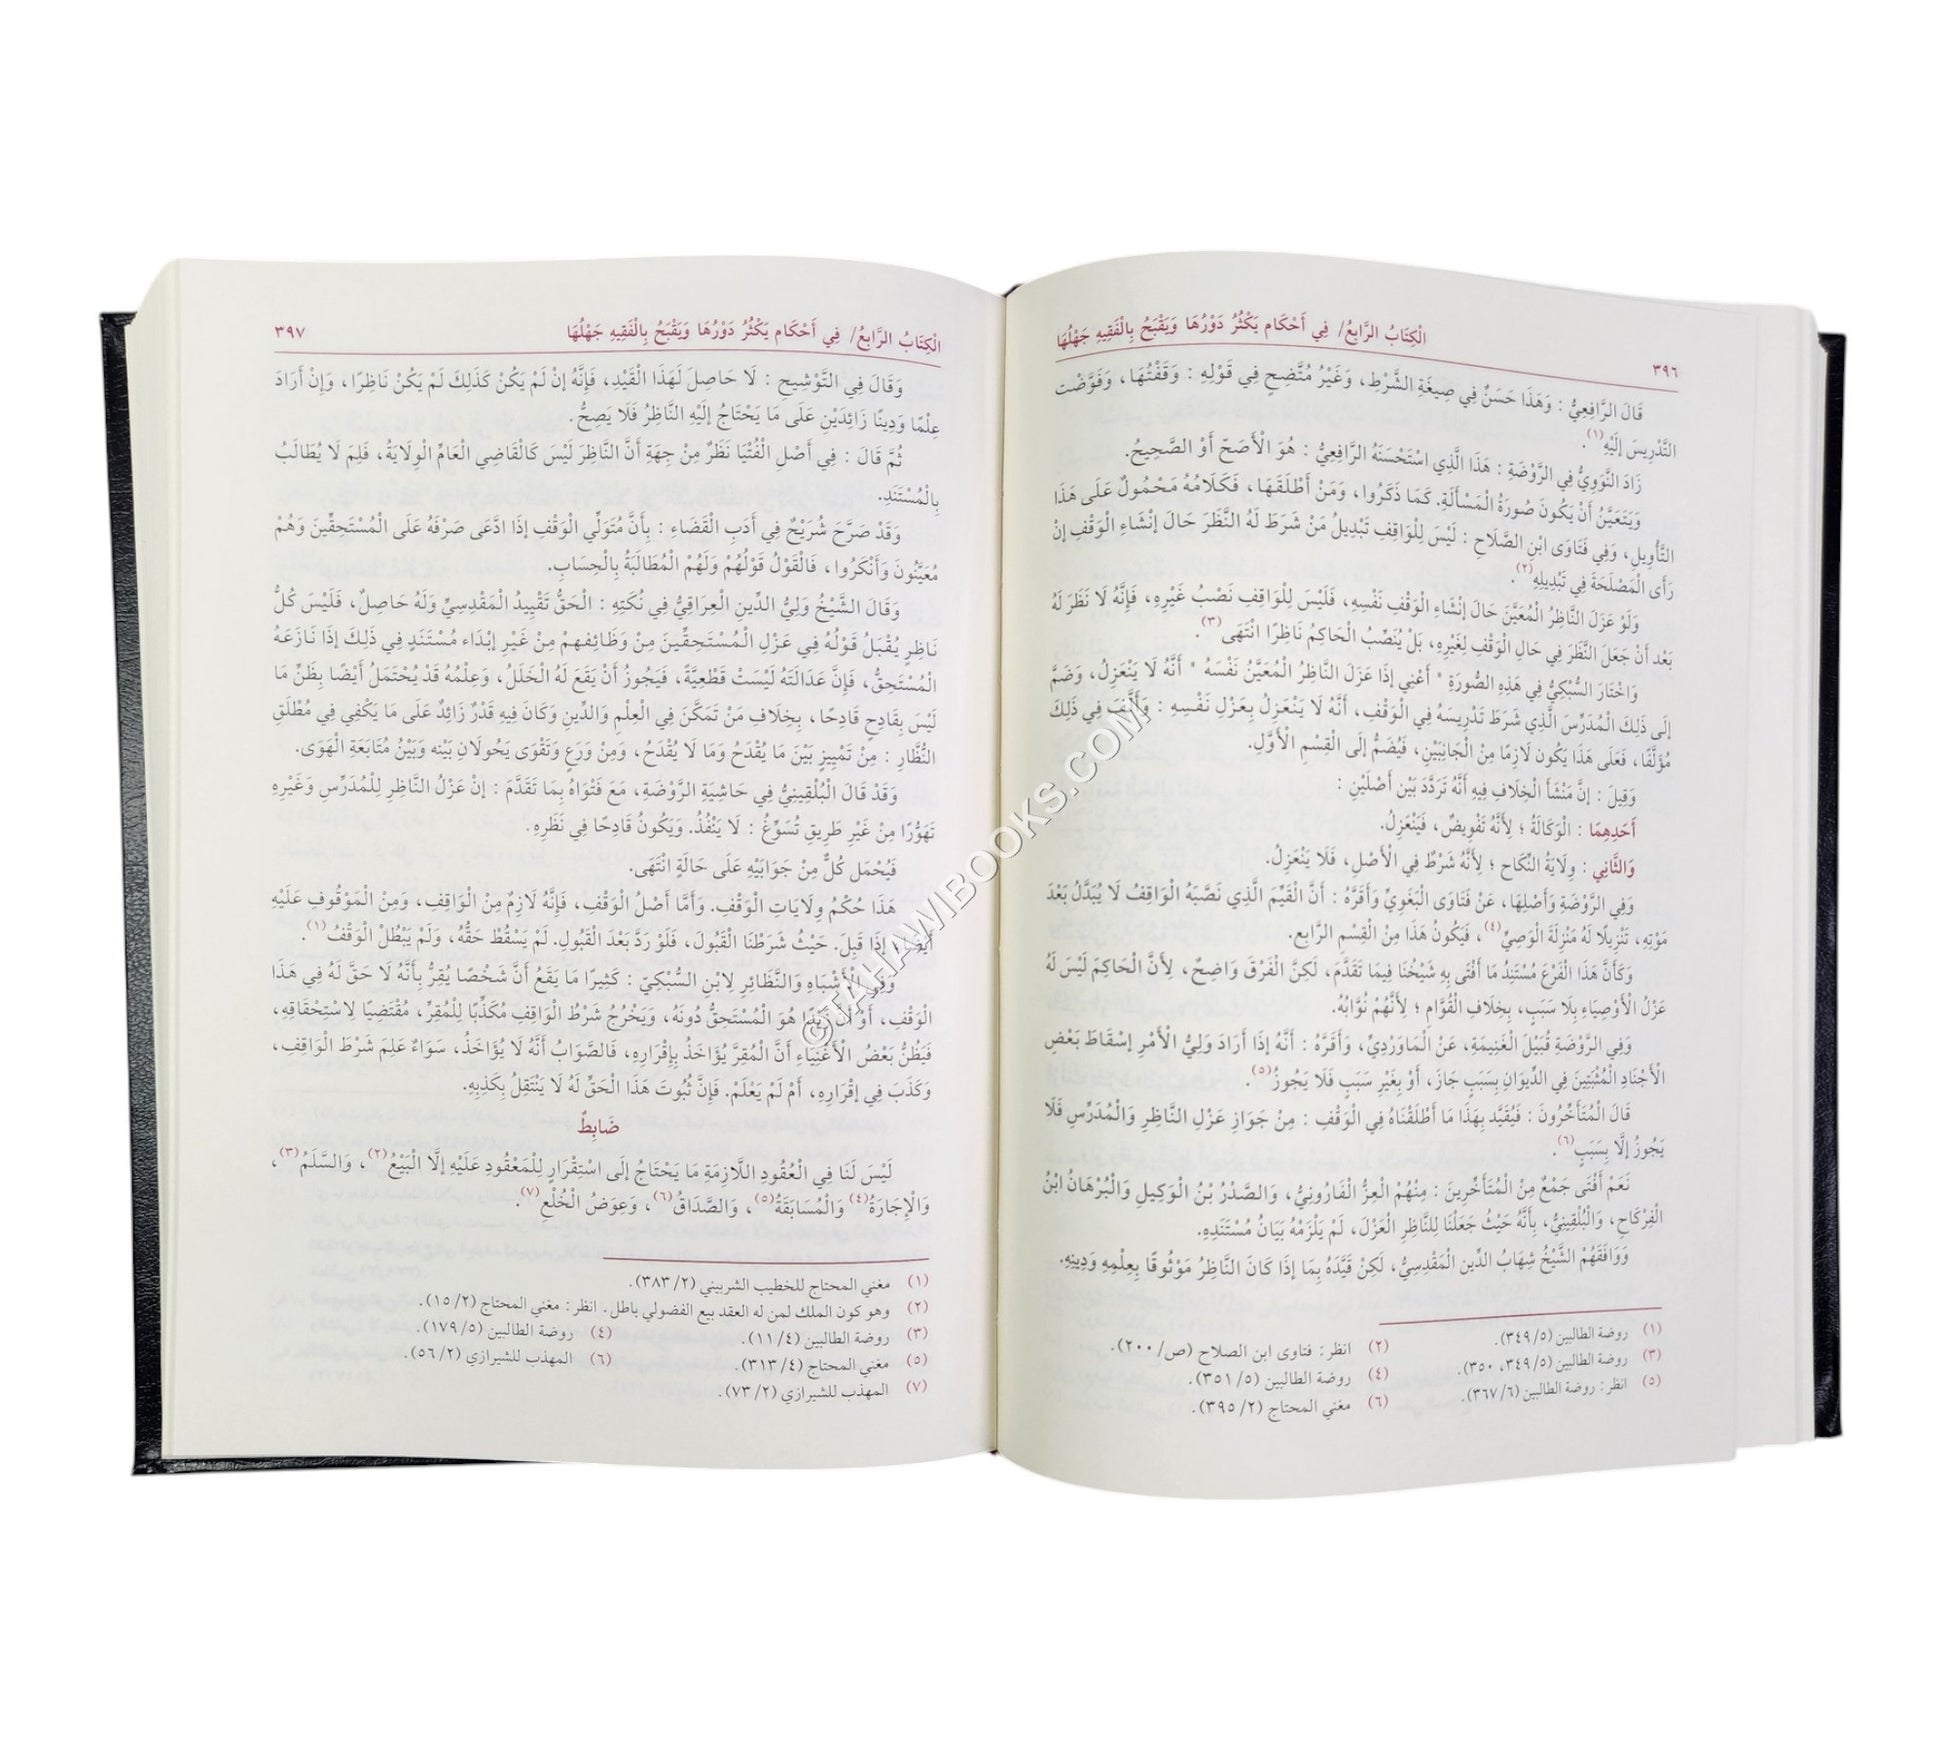 الْكِتَابُ الرَّابِعُ/ فِي أَحْكَام يَكْثُرُ دَوْرُهَا وَيَقْبَحُ بِالْفَقِيهِ جَهْلُهَا
٣٩٦
قَالَ الرَّافِعِيُّ : وَهَذَا حَسَنٌ فِي صِيغَةِ الشَّرْطِ، وَغَيْرُ مُتَّضِحٍ فِي قَوْلِهِ : وَقَفْتُهَا، وَفَوَّضْت
التَّدْرِيسَ إلَيْهِ(١).
زَادَ النَّوَوِيُّ فِي الرَّوْضَةِ : هَذَا الَّذِي اسْتَحْسَنَهُ الرَّافِعِيُّ : هُوَ الْأَصَحّ أَوْ الصَّحِيحُ.
وَيَتَعَيَّنُ أَنْ يَكُونَ صُورَةُ الْمَسْأَلَةِ. كَمَا ذَكَرُوا، وَمَنْ أَطْلَقَهَا، فَكَلَامُهُ مَحْمُولٌ عَلَى هَذَا
التَّأْوِيلِ، وَفِي فَتَاوَى ابْنِ الصَّلَاحِ : لَيْسَ لِلْوَاقِفِ تَبْدِيلُ مَنْ شَرَطَ لَهُ النَّظَرَ حَالَ إنْشَاءِ الْوَقْفِ إنْ
رَأَى الْمَصْلَحَةَ فِي تَبْدِيلِهِ(٢).
وَلَوْ عَزَلَ النَّاظِرُ الْمُعَيَّنَ حَالَ إنْشَاءِ الْوَقْفِ نَفْسِهِ، فَلَيْسَ لِلْوَاقِفِ نَصْبُ غَيْرِهِ، فَإِنَّهُ لَا نَظَرَ لَهُ
بَعْد أَنْ جَعَلَ النَّظَرَ فِي حَالِ الْوَقْفِ لِغَيْرِهِ، بَلْ يُنَصِّبُ الْحَاكِمُ نَاظِرًا انْتَهَى(٣).
وَاخْتَارَ السُّبْكِيُّ فِي هَذِهِ الصُّورَةِ " أَعْنِي إذَا عَزَلَ النَّاظِرُ الْمُعَيَّنُ نَفْسَهُ " أَنَّهُ لَا يَنْعَزِلُ، وَضَمَّ
إلَى ذَلِكَ الْمُدَرِّسَ الَّذِي شَرَطَ تَدْرِيسَهُ فِي الْوَقْفِ، أَنَّهُ لَا يَنْعَزِلُ بِعَزْلِ نَفْسِهِ : وَأَلَّفَ فِي ذَلِكَ
مُؤَلَّفًا، فَعَلَى هَذَا يَكُون لَازِمًا مِنْ الْجَانِبَيْنِ، فَيُضَمُّ إلَى الْقِسْمِ الْأَوَّلِ.
وَقِيلَ : إنَّ مَنْشَأَ الْخِلَافِ فِيهِ أَنَّهُ تَرَدَّدَ بَيْن أَصْلَيْنِ :
أَحَدِهِمَا : الْوَكَالَةُ ؛ لِأَنَّهُ تَفْوِيضٌ، فَيَنْعَزِلُ.
وَالثَّانِي : وِلَايَةُ النِّكَاحِ ؛ لِأَنَّهُ شَرْطٌ فِي الْأَصْلِ، فَلَا يَنْعَزِلُ.
وَفِي الرَّوْضَةِ وَأَصْلِهَا، عَنْ فَتَاوَى الْبَغَوِيِّ وَأَقَرَّهُ : أَنَّ الْقَيِّمَ الَّذِي نَصَّبَهُ الْوَاقِفُ لَا يُبَدَّلُ بَعْدَ
مَوْتِهِ، تَنْزِيلًا لَهُ مَنْزِلَةَ الْوَصِيِّ(٤)، فَيَكُونُ هَذَا مِنْ الْقِسْمِ الرَّابِع.
وَكَأَنَّ هَذَا الْفَرْعَ مُسْتَنِدُ مَا أَفْتَى بِهِ شَيْخُنَا فِيمَا تَقَدَّمَ، لَكِنَّ الْفَرْقَ وَاضِحٌ، لِأَنَّ الْحَاكِمَ لَيْسَ لَهُ
عَزْلُ الْأَوْصِيَاءِ بِلَا سَبَبٍ، بِخِلَافِ الْقُوَّامِ ؛ لِأَنَّهُمْ نُوَّابُهُ.
وَفِي الرَّوْضَةِ قُبَيْلَ الْغَنِيمَةِ، عَنْ الْمَاوَرْدِيِّ، وَأَقَرَّهُ : أَنَّهُ إذَا أَرَادَ وَلِيُّ الْأَمْرِ إسْقَاطَ بَعْضِ
الْأَجْنَادِ الْمُثْبَتِينَ فِي الدِّيوَانِ بِسَبَبٍ جَازَ، أَوْ بِغَيْرِ سَبَبٍ فَلَا يَجُوزُ(٥).
قَالَ الْمُتَأَخِّرُونَ : فَيُقَيَّد بِهَذَا مَا أَطْلَقْنَاهُ فِي الْوَقْفِ : مِنْ جَوَازِ عَزْلِ النَّاظِرِ وَالْمُدَرِّسِ فَلَا
يَجُوزُ إلَّا بِسَبَبٍ(٦).
نَعَمْ أَفْتَى جَمْعٌ مِنْ الْمُتَأَخِّرِينَ : مِنْهُمْ الْعِزُّ الْفَارُونِيُّ، وَالصَّدْرُ بْنُ الْوَكِيلِ وَالْبُرْهَانُ ابْنُ
الْفِرْكَاحِ، وَالْبُلْقِينِيُّ، بِأَنَّهُ حَيْثُ جَعَلْنَا لِلنَّاظِرِ الْعَزْلَ، لَمْ يَلْزَمْهُ بَيَانُ مُسْتَنَدِهِ.
وَوَافَقَهُمْ الشَّيْخُ شِهَابُ الدِّين الْمَقْدِسِيُّ، لَكِنْ قَيَّدَهُ بِمَا إذَا كَانَ النَّاظِرُ مَوْثُوقًا بِعِلْمِهِ وَدِينِهِ.
(١) روضة الطالبين (٣٤٩/٥).
(٢) انظر: فتاوى ابن الصلاح (ص/٢٠٠).
(٣) روضة الطالبين (٣٤٩/٥، ٣٥٠).
(٤) روضة الطالبين (٣٥١/٥).
(٥) انظر: روضة الطالبين (٣٦٧/٦).
(٦) مغني المحتاج (٣٩٥/٢).
الْكِتَابُ الرَّابِعُ/ فِي أَحْكَام يَكْثُرُ دَوْرُهَا وَيَقْبَحُ بِالْفَقِيهِ جَهْلُهَا
٣٩٧
وَقَالَ فِي التَّوْشِيحِ : لَا حَاصِلَ لَهَذَا الْقَيْدِ، فَإِنَّهُ إنْ لَمْ يَكُنْ كَذَلِكَ لَمْ يَكُنْ نَاظِرًا، وَإِنْ أَرَادَ
عِلْمًا وَدِينًا زَائِدَيْنِ عَلَى مَا يَحْتَاجُ إلَيْهِ النَّاظِرُ فَلَا يَصِحُّ.
ثُمَّ قَالَ : فِي أَصْلِ الْفُتْيَا نَظَرٌ مِنْ جِهَةِ أَنَّ النَّاظِرَ لَيْسَ كَالْقَاضِي الْعَامِّ الْوِلَايَةُ، فَلِمَ لَا يُطَالَبُ
بِالْمُسْتَنَدِ.
وَقَدْ صَرَّحَ شُرَيْحٌ فِي أَدَبِ الْقَضَاءِ : بِأَنَّ مُتَوَلِّي الْوَقْفِ إذَا ادَّعَى صَرْفَهُ عَلَى الْمُسْتَحِقِّينَ وَهُمْ
مُعَيَّنُونَ وَأَنْكَرُوا، فَالْقَوْلُ قَوْلُهُمْ وَلَهُمْ الْمُطَالَبَةُ بِالْحِسَابِ.
وَقَالَ الشَّيْخُ وَلِيُّ الدِّينِ الْعِرَاقِيُّ فِي نُكَتِهِ : الْحَقُّ تَقْيِيدُ الْمَقْدِسِيِّ وَلَهُ حَاصِلٌ، فَلَيْسَ كُلُّ
نَاظِرٍ يُقْبَلُ قَوْلُهُ فِي عَزْلِ الْمُسْتَحِقِّينَ مِنْ وَظَائِفهِمْ مِنْ غَيْرِ إبْدَاء مُسْتَنَدٍ فِي ذَلِكَ إذَا نَازَعَهُ
الْمُسْتَحِقُّ، فَإِنَّ عَدَالَتَهُ لَيْسَتْ قَطْعِيَّةً، فَيَجُوزُ أَنْ يَقَعَ لَهُ الْخَلَلُ، وَعِلْمُهُ قَدْ يُحْتَمَلُ أَيْضًا بِظَنِّ مَا
لَيْسَ بِقَادِحٍ قَادِحًا، بِخِلَافِ مَنْ تَمَكَّنَ فِي الْعِلْمِ وَالدِّينِ وَكَانَ فِيهِ قَدْرٌ زَائِدٌ عَلَى مَا يَكْفِي فِي مُطْلَقِ
النُّظَّارِ : مِنْ تَمْيِيزٍ بَيْنَ مَا يُقْدَحُ وَمَا لَا يُقْدَحُ، وَمِنْ وَرَعٍ وَتَقْوَى يَحُولَانِ بَيْنه وَبَيْنُ مُتَابَعَةِ الْهَوَى.
وَقَدْ قَالَ الْبُلْقِينِيُّ فِي حَاشِيَةِ الرَّوْضَةِ، مَعَ فَتْوَاهُ بِمَا تَقَدَّمَ : إنَّ عَزْلُ النَّاظِرِ لِلْمُدَرِّسِ وَغَيْرِهِ
تَهَوُّرًا مِنْ غَيْرِ طَرِيقِ تُسَوِّغُ : لَا يَنْفُذُ. وَيَكُونُ قَادِحًا فِي نَظَرِهِ.
فَيُحْمَل كُلٌّ مِنْ جَوَابَيْهِ عَلَى حَالَةٍ انْتَهَى.
هَذَا حُكْمُ وِلَايَاتِ الْوَقْفِ. وَأَمَّا أَصْلُ الْوَقْفِ، فَإِنَّهُ لَازِمٌ مِنْ الْوَاقِفِ، وَمِنْ الْمَوْقُوفِ عَلَيْهِ
أَيْضًا إذَا قَبِلَ. حَيْثُ شَرَطْنَا الْقَبُولَ، فَلَوْ رَدَّ بَعْدَ الْقَبُولِ. لَمْ يَسْقُطْ حَقُّهُ، وَلَمْ يَبْطُلْ الْوَقْفُ(١).
وَفِي الْأَشْبَاهِ وَالنَّظَائِرِ لِابْنِ السُّبْكِيّ : كَثِيرًا مَا يَقَعُ أَنَّ شَخْصًا يُقِرُّ بِأَنَّهُ لَا حَقَّ لَهُ فِي هَذَا
الْوَقْفِ، أَوْ أَنَّ زَيْدًا هُوَ الْمُسْتَحِقُّ دُونَهُ، وَيَخْرُجُ شَرْطُ الْوَاقِفِ مُكَذِّبًا لِلْمُقِرِّ، مُقْتَضِيًا لِاسْتِحْقَاقِهِ،
فَيَظُنُّ بَعْضُ الْأَغْنِيَاءِ أَنَّ الْمُقِرَّ يُؤَاخَذُ بِإِقْرَارِهِ، فَالصَّوَابُ أَنَّهُ لَا يُؤَاخَذُ، سَوَاءٌ عَلِمَ شَرْطَ الْوَاقِفِ،
وَكَذَبَ فِي إقْرَارِهِ، أَمْ لَمْ يَعْلَمْ. فَإِنَّ ثُبُوتَ هَذَا الْحَقِّ لَهُ لَا يَنْتَقِلُ بِكَذِبِهِ.
ضَابِطٌ
لَيْسَ لَنَا فِي الْعُقُودِ اللَّازِمَةِ مَا يَحْتَاجُ إلَى اسْتِقْرَارٍ لِلْمَعْقُودِ عَلَيْهِ إلَّا الْبَيْعُ(٢)، وَالسَّلَمُ(٣)،
وَالْإِجَارَةُ(٤) وَالْمُسَابَقَةُ(٥)، وَالصَّدَاقُ(٦)، وَعِوَضُ الْخُلْعِ(٧).
(١) مغني المحتاج للخطيب الشربيني (٣٨٣/٢).
(٢) وهو كون الملك لمن له العقد بيع الفضولي باطل. انظر: مغني المحتاج (١٥/٢).
(٣) روضة الطالبين (١١/٤).
(٤) روضة الطالبين (١٧٩/٥).
(٥) مغني المحتاج (٣١٣/٤).
(٦) المهذب للشيرازي (٥٦/٢).
(٧) المهذب للشيرازي (٧٣/٢).
©TAHAWIBOOKS.COM